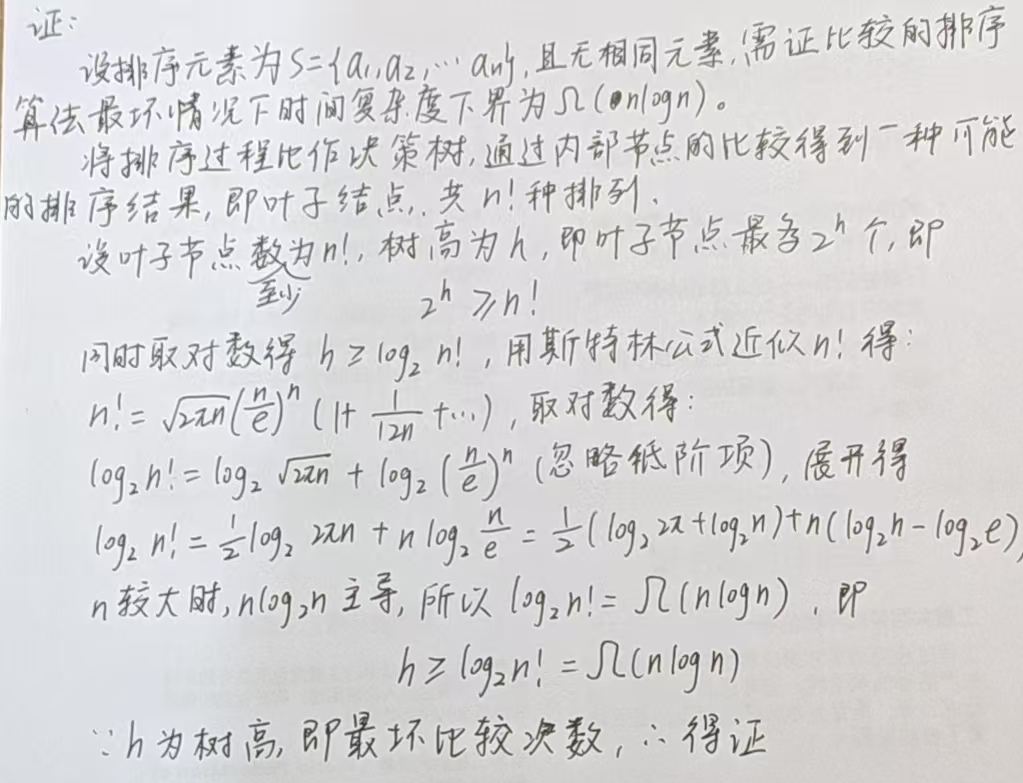 证:
设排序元素为S={a₁,a₂,⋯ aₙ},且无相同元素,需证比较的排序
算法最坏情况下时间复杂度下界为Ω(nlogn)。
将排序过程比作决策树,通过内部节点的比较得到一种可能
的排序结果,即叶子结点,共n!种排列.
设叶子节点数为n!,树高为h,即叶子节点最多2ʰ个,即
至少
2ʰ ≥ n!
同时取对数得 h ≥ log₂ n! ,用斯特林公式近似n!得:
n! = √2πn (n/e)ⁿ (1+ 1/12n +⋯) ,取对数得:
log₂n! = log₂ √2πn + log₂ (n/e)ⁿ (忽略低阶项),展开得
log₂ n! = 1/2 log₂ 2πn + n log₂ n/e = 1/2 (log₂2π+log₂n)+n(log₂n-log₂e),
n较大时,nlog₂n主导,所以 log₂n! = Ω(nlogn) . 即
h ≥ log₂n! = Ω(nlogn)
∵h为树高,即最坏比较次数,∴得证